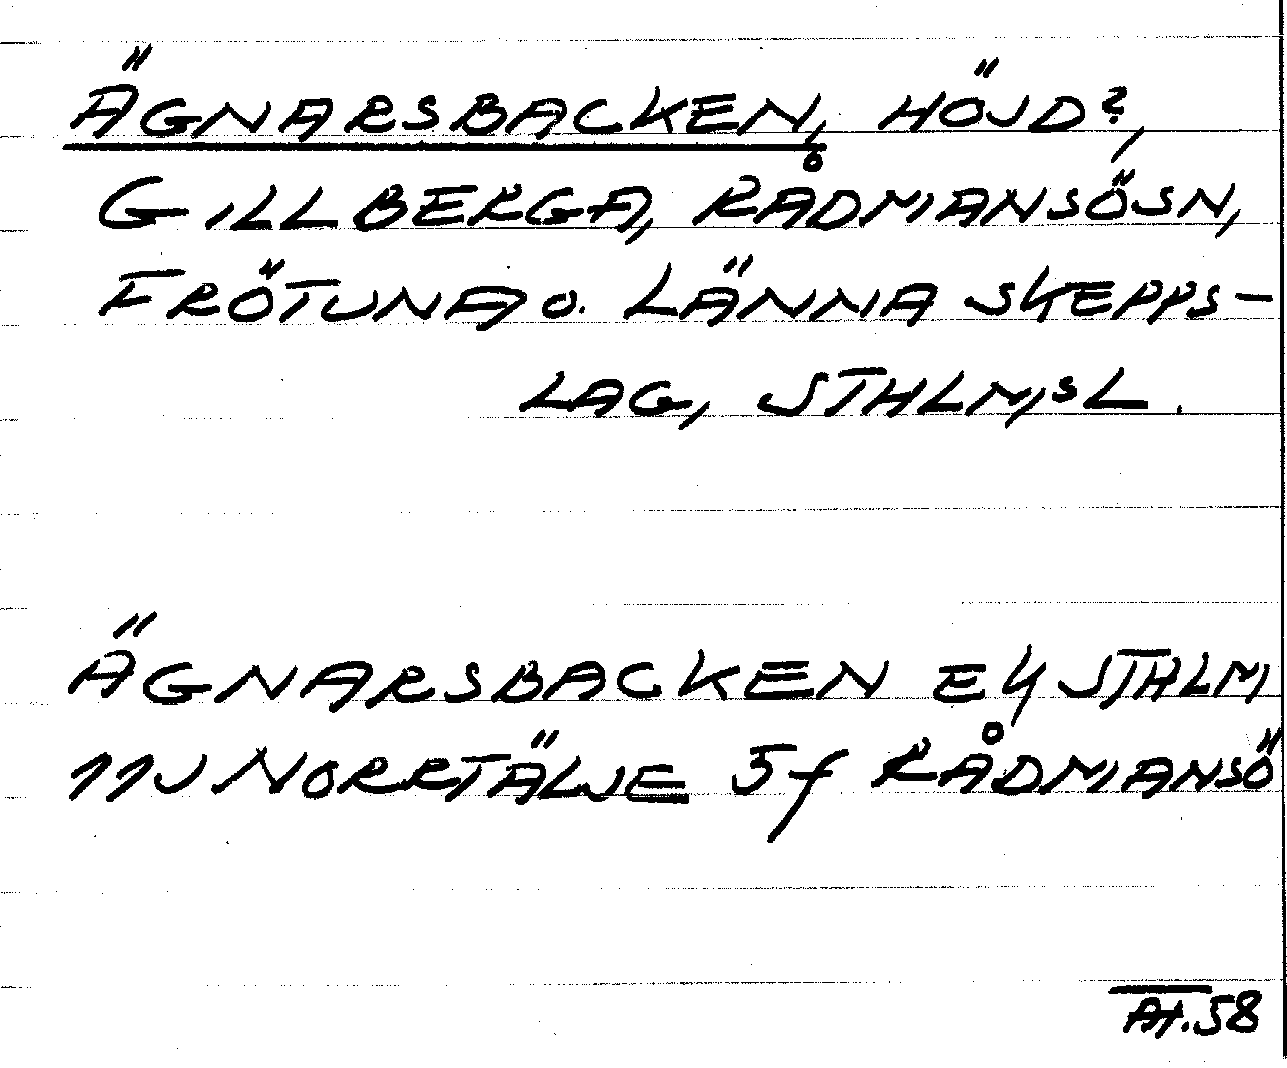 ÄGNARSBACKEN, HÖJD?,
GILLBERGA, RÅDMANSÖSN,
FRÖTUNA O. LÄNNA SKEPPS-
LAG, STHLM,S L.
ÄGNARSBACKEN E4 STHLM
11J NORRTÄLJE 5f RÅDMANSÖ
At.58